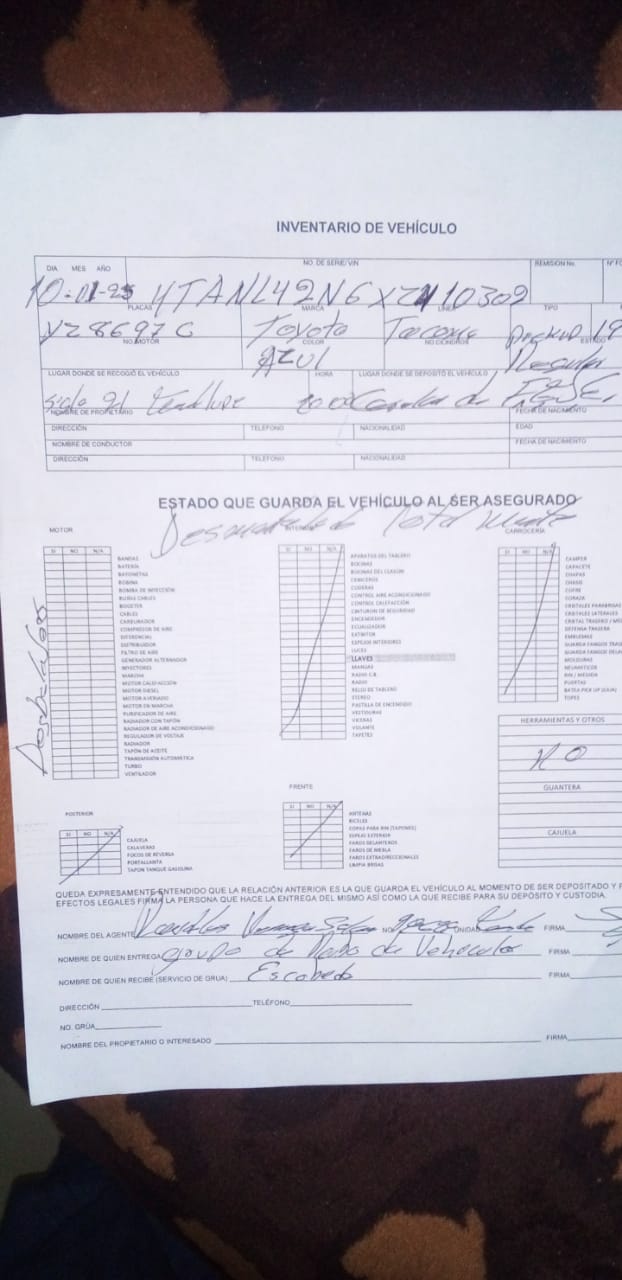 INVENTARIO DE VEHÍCULO
DIA MES AÑO NO. DE SERIE/VIN REMISION No.
10-01-25
PLACAS MARCA TIPO
YZ8697C Toyota Tacoma Pickup
NO. MOTOR COLOR NO CILINDROS
AZUL Regular
LUGAR DONDE SE RECOGIÓ EL VEHÍCULO HORA LUGAR DONDE SE DEPOSITÓ EL VEHÍCULO
NOMBRE DE PROPIETARIO FECHA DE NACIMIENTO
DIRECCIÓN TELEFONO NACIONALIDAD EDAD
NOMBRE DE CONDUCTOR FECHA DE NACIMIENTO
DIRECCIÓN TELEFONO NACIONALIDAD
ESTADO QUE GUARDA EL VEHÍCULO AL SER ASEGURADO
Desmantelado Totalmente
MOTOR
SI NO N/A
BANDAS
BATERÍA
BAYONETAS
BOBINA
BOMBA DE INYECCIÓN
BUJÍAS CABLES
BOOSTER
CABLES
CARBURADOR
COMPRESOR DE AIRE
DIFERENCIAL
DISTRIBUIDOR
FILTRO DE AIRE
GENERADOR ALTERNADOR
INYECTORES
MARCHA
MOTOR CALEFACCIÓN
MOTOR DIESEL
MOTOR AVERIADO
MOTOR EN MARCHA
PURIFICADOR DE AIRE
RADIADOR CON TAPÓN
RADIADOR DE AIRE ACONDICIONADO
REGULADOR DE VOLTAJE
RADIADOR
TAPÓN DE ACEITE
TRANSMISIÓN AUTOMÁTICA
TURBO
VENTILADOR
SI NO N/A
APARATOS DEL TABLERO
BOCINAS
BOCINAS DEL CLAXON
CENICEROS
CODERAS
CONTROL AIRE ACONDICIONADO
CONTROL CALEFACCIÓN
CINTURON DE SEGURIDAD
ENCENDEDOR
ECUALIZADOR
EXTINTOR
ESPEJOS INTERIORES
LUCES
LLAVES
MANIJAS
RADIO C.B.
RADIO
RELOJ DE TABLERO
STEREO
PASTILLA DE ENCENDIDO
VESTIDURAS
VISERAS
VOLANTE
TAPETES
CARROCERÍA
SI NO N/A
CAMPER
CAPACETE
CHAPAS
CHASIS
COFRE
CORAZA
CRISTALES PARABRISAS
CRISTALES LATERALES
CRISTAL TRASERO
DEFENSA TRASERA
EMBLEMAS
GUARDA FANGOS
GUARDA FANGOS
MOLDURAS
NEUMÁTICOS
RIN / MEDIDA
PUERTAS
BATEA PICK UP (CAJA)
TOPES
HERRAMIENTAS Y OTROS
NO
GUANTERA
CAJUELA
POSTERIOR
SI NO N/A
CAJUELA
CALAVERAS
FOCOS DE REVERSA
PORTALLANTA
TAPON TANQUE GASOLINA
FRENTE
SI NO N/A
ANTENAS
BICELES
COPAS PARA RIN (TAPONES)
ESPEJO EXTERIOR
FAROS DELANTEROS
FAROS DE NIEBLA
FAROS EXTRADIRECCIONALES
LIMPIA BRISAS
QUEDA EXPRESAMENTE ENTENDIDO QUE LA RELACIÓN ANTERIOR ES LA QUE GUARDA EL VEHÍCULO AL MOMENTO DE SER DEPOSITADO Y
EFECTOS LEGALES FIRMA LA PERSONA QUE HACE LA ENTREGA DEL MISMO ASÍ COMO LA QUE RECIBE PARA SU DEPÓSITO Y CUSTODIA.
NOMBRE DEL AGENTE NO. UNIDAD FIRMA
NOMBRE DE QUIEN ENTREGA grupo de Robo de Vehiculos FIRMA
NOMBRE DE QUIEN RECIBE (SERVICIO DE GRUA) Escobedo FIRMA
DIRECCIÓN TELÉFONO
NO. GRÚA
NOMBRE DEL PROPIETARIO O INTERESADO FIRMA